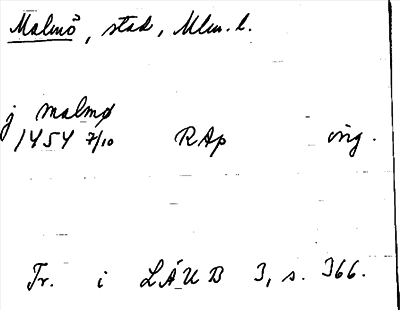 Malmö, stad, Mlm. l.
j malmø
1454 7/10 RAp orig.
Tr. i LÄUB 3, s. 366.